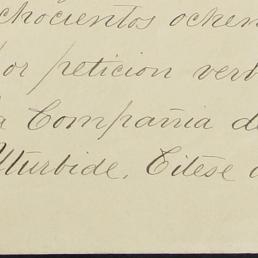 chocientos ochen
or peticion verb
a Compañia de
Yturbide. Citese